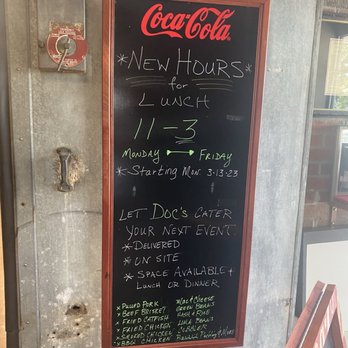 Coca-Cola
*NEW HOURS*
for
LUNCH
11-3
MONDAY FRIDAY
*Starting Mon 3-13-23
LET DOC'S CATER
YOUR NEXT EVENT
*DELIVERED
*ON SITE
*SPACE AVAILABLE 4
LUNCH OR DINNER
* PULLED PORK
* BEEF BRISKET
* FRIED CATFISH
* FRIED CHICKEN
* SMOKED CHICKEN
* BBQ CHICKEN
MAC & CHEESE
GREEN BEANS
COBBLER